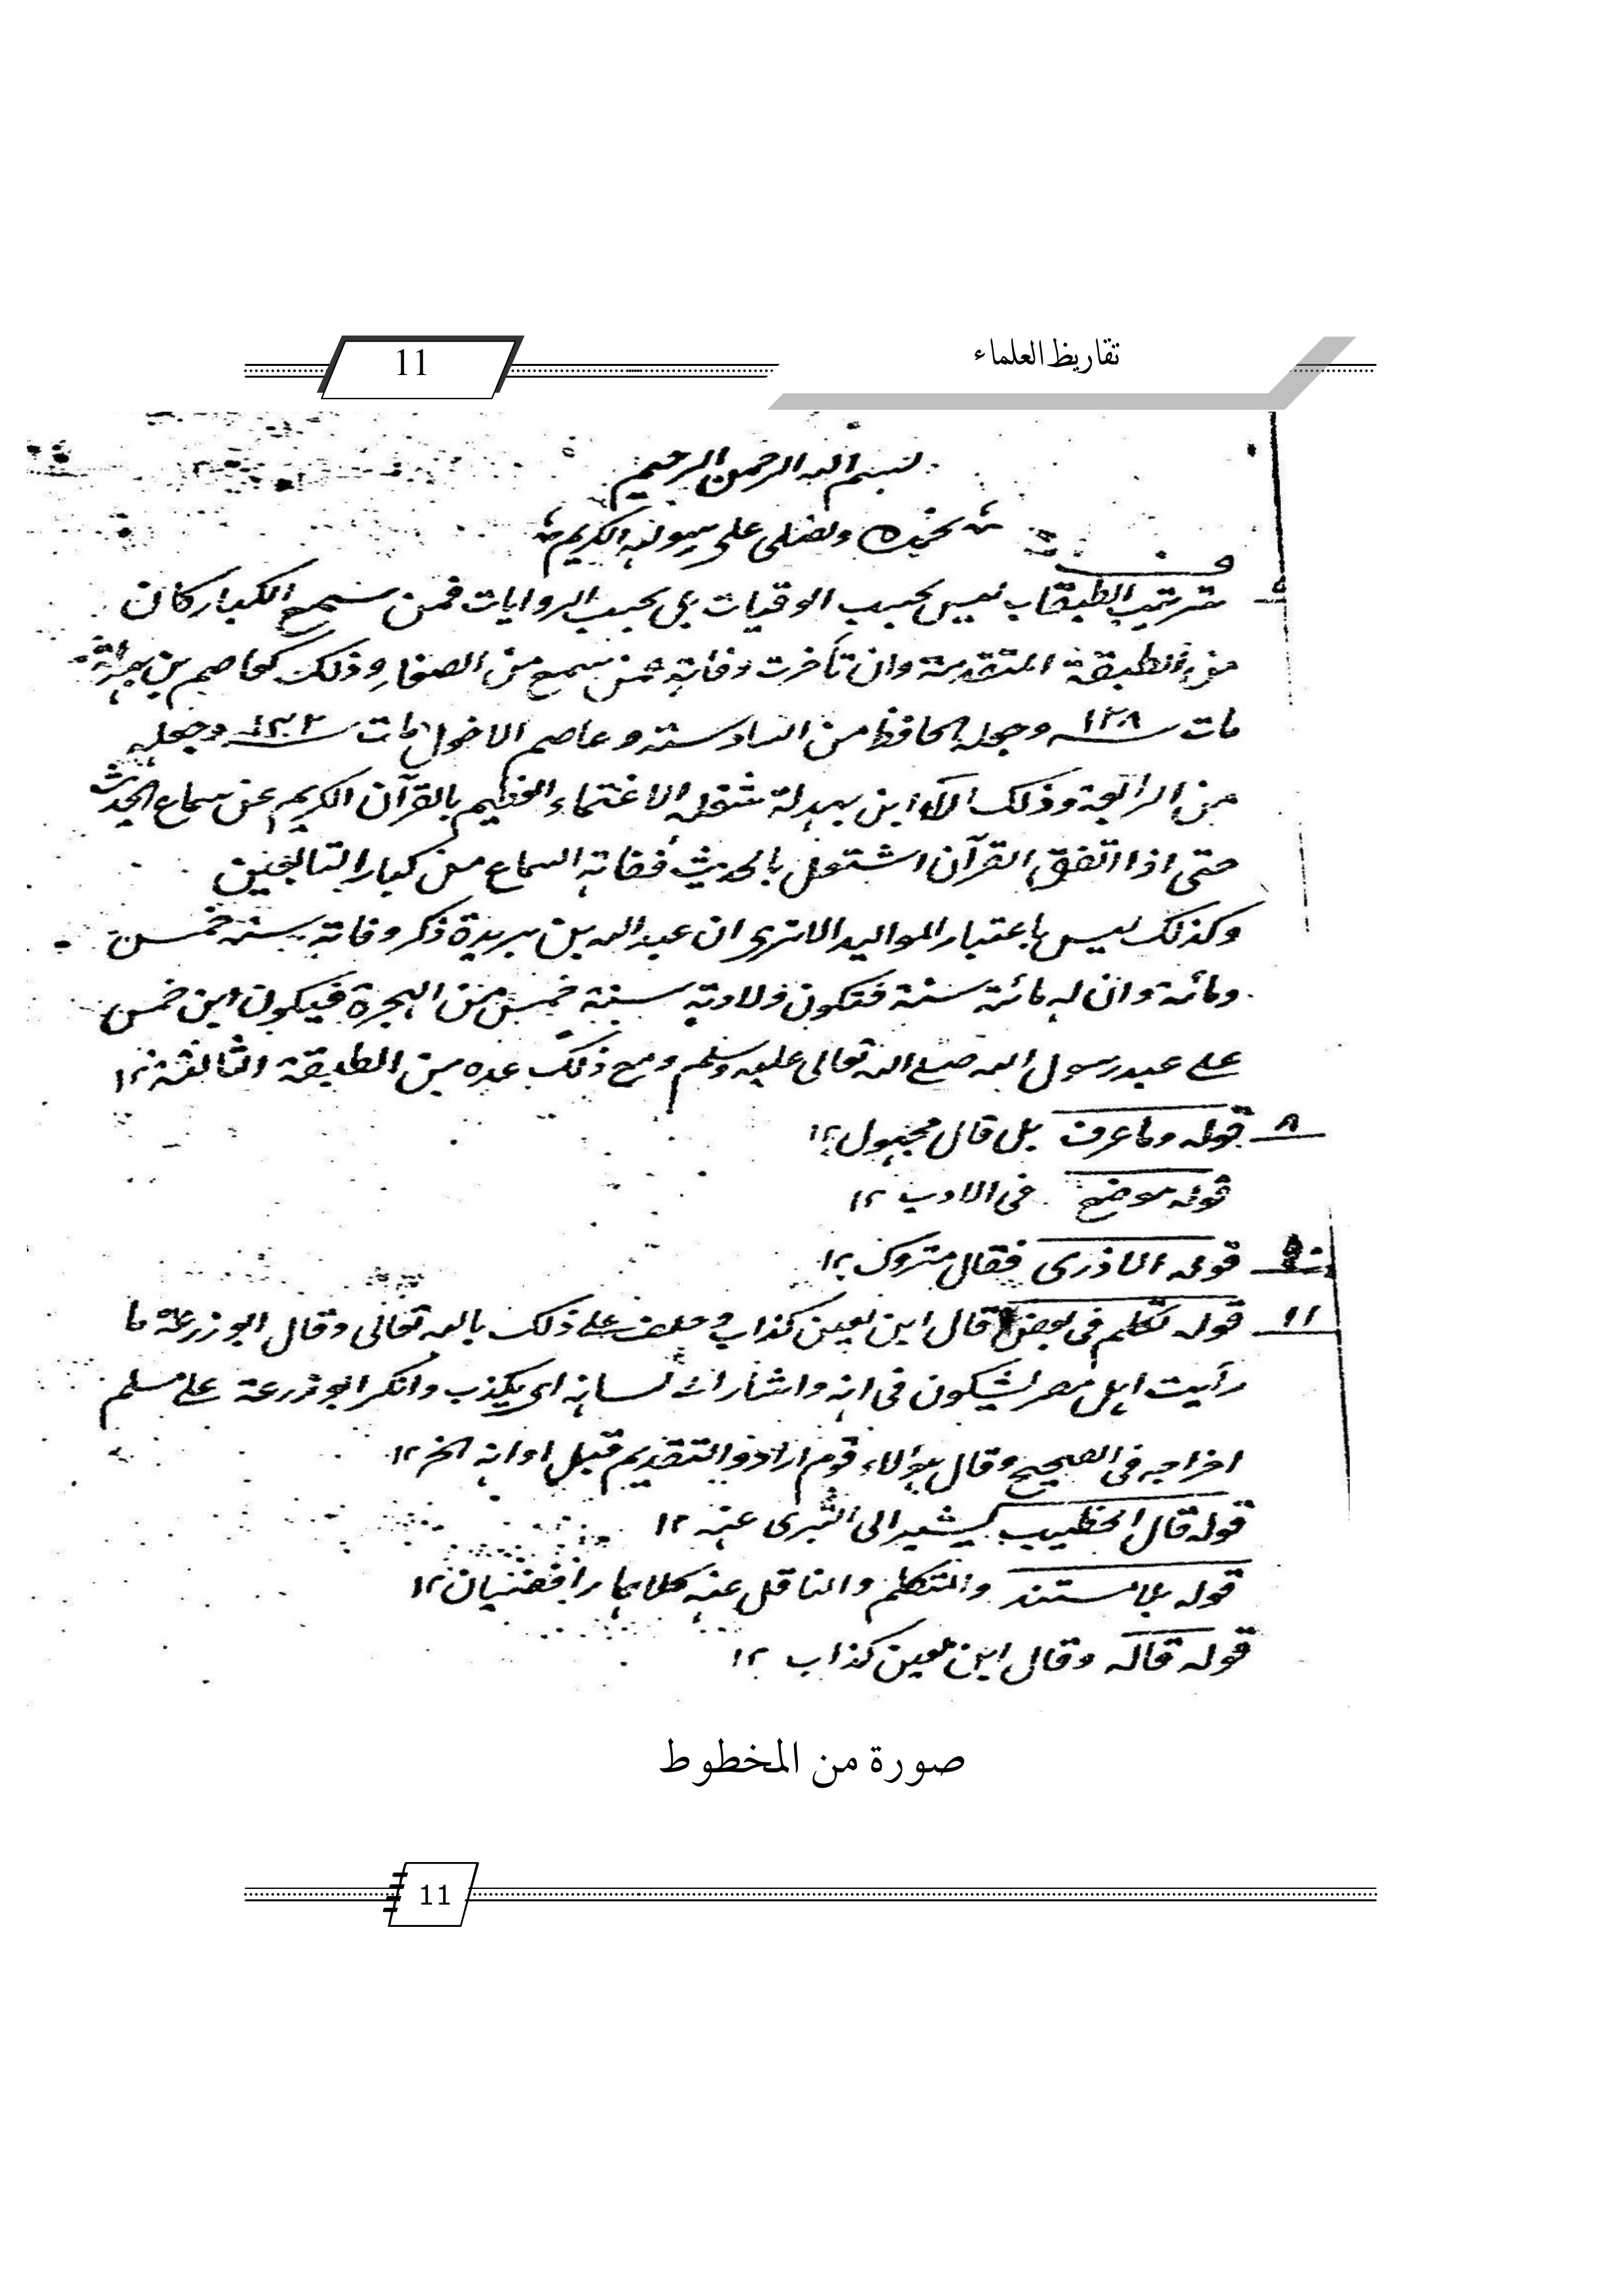 تقاريظ العلماء
11
بسم الله الرحمن الرحيم
نحمده ونصلى على رسوله الكريم
ف
ترتيب الطبقات ليس بحسب الوفيات بل بحسب الروايات فمن سمع الكبار كان
من الطبقة المتقدمة وان تأخرت وفاته عمن سمع من الصغار وذلك كعاصم بن بهدلة
مات ١٢٨ وجعله الحافظ من السادسة وعاصم الاحول مات وجعله
من الرابعة وذلك لأن ابن بهدلة شغله الاعتماء العظيم بالقرآن الكريم عن سماع الحديث
حتى اذا اتقن القرآن اشتغل بالحديث ففاته السماع من كبار التابعين
وكذلك ليس باعتبار المواليد الا ترى ان عبد الله بن بريدة ذكر وفاته سنة خمس
ومائة وان له مائة سنة فتكون ولادته سنة خمس من الهجرة فيكون ابن خمس
على عهد رسول الله صلى الله تعالى عليه وسلم ومع ذلك عده من الطبقة الثالثة ١٢
٨ قوله وما عرف بل قال مجهول ١٢
قوله موضع فى الادب ١٢
قوله الاذرى فقال متروك ١٢
١١ قوله تكلم فى بعض قال ابن معين كذاب و حلف على ذلك بالله تعالى وقال ابو زرعة ما
رأيت اهل مصر يشكون فى انه واشار الى لسانه اى يكذب وانكر ابو زرعة على مسلم
اخراجه فى الصحيح وقال هؤلاء قوم ارادوا التقديم قبل اوانه الخ ١٢
قوله قال الخطيب يشير الى التبرى عنه ١٢
قوله بلا مستند والمتكلم والناقل عنه كلاهما رافضيان ١٢
قوله قاله وقال ابن معين كذاب ١٢
صورة من المخطوط
11